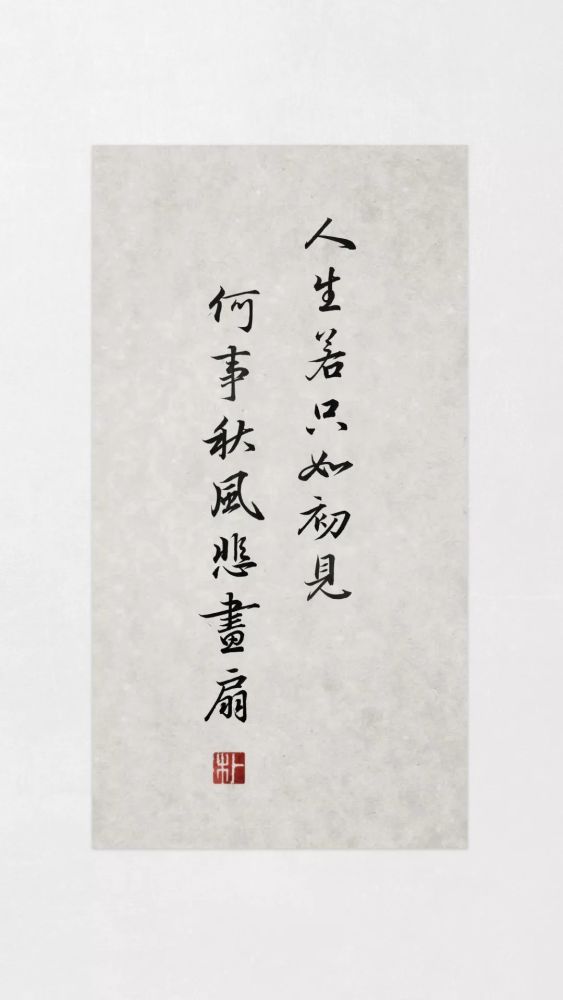 人生若只如初見
何事秋風悲畫扇
朴